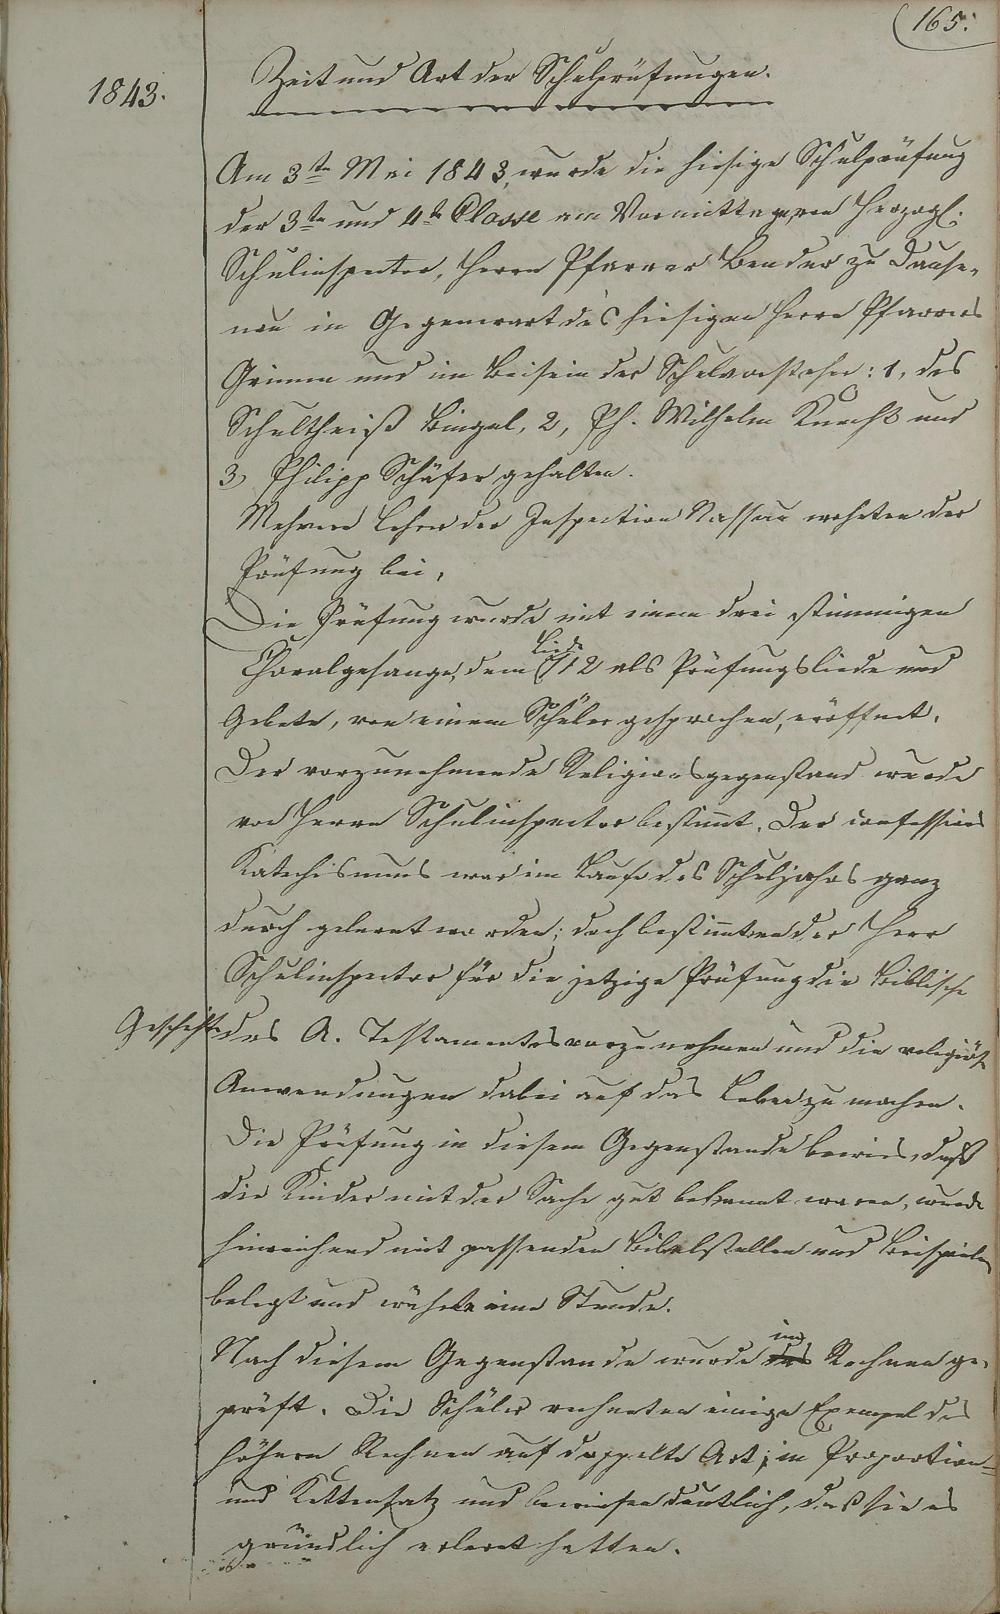 165.
1843.
Zeit und Art der Schulprüfungen.
Am 3ten Mai 1843, wurde die hiesige Schulprüfung
der 3ten und 4ten Classe am Vormittag von Herzogl.
Schulinspector, Herrn Pfarrer Bender zu Dause-
nau in Gegenwart des hiesigen Herrn Pfarrers
Grimm und im Beisein der Schulvorsteher: 1, des
Schultheiß Bingel, 2, Ph. Wilhelm Knecht und
3, Philipp Schäfer gehalten.
Mehrere Lehrer der Inspection Nassau wohnten der
Prüfung bei,
Die Prüfung wurde mit einem drei stimmigen
Choralgesange, dem Liede 112 als Prüfungsliede und
Gebete, von einem Schüler gesprochen, eröffnet.
Der vorzunehmende Religionsgegenstand wurde
von Herrn Schulinspector bestimmt. Der
Katechismus war im Laufe des Schuljahrs ganz
durch gelernt worden; doch bestimmten der Herr
Schulinspector für die jetzige Prüfung die Biblische
Geschichte des A. Testamentes vorzunehmen und die religiöse
Anwendungen dabei auf das Leben zu machen.
Die Prüfung in diesem Gegenstande bewies, daß
die Kinder mit der Sache gut bekannt waren, wurde
hinreichend mit passenden Bibelstellen und Beispielen
belegt und währte eine Stunde.
Nach diesem Gegenstande wurde im Rechnen ge-
prüft. Die Schüler rechneten einige Exempel des
höhern Rechnen auf doppelte Art, in Proportion-
und Kettensatz und bewiesen deutlich, daß sie es
gründlich erlernt hatten.